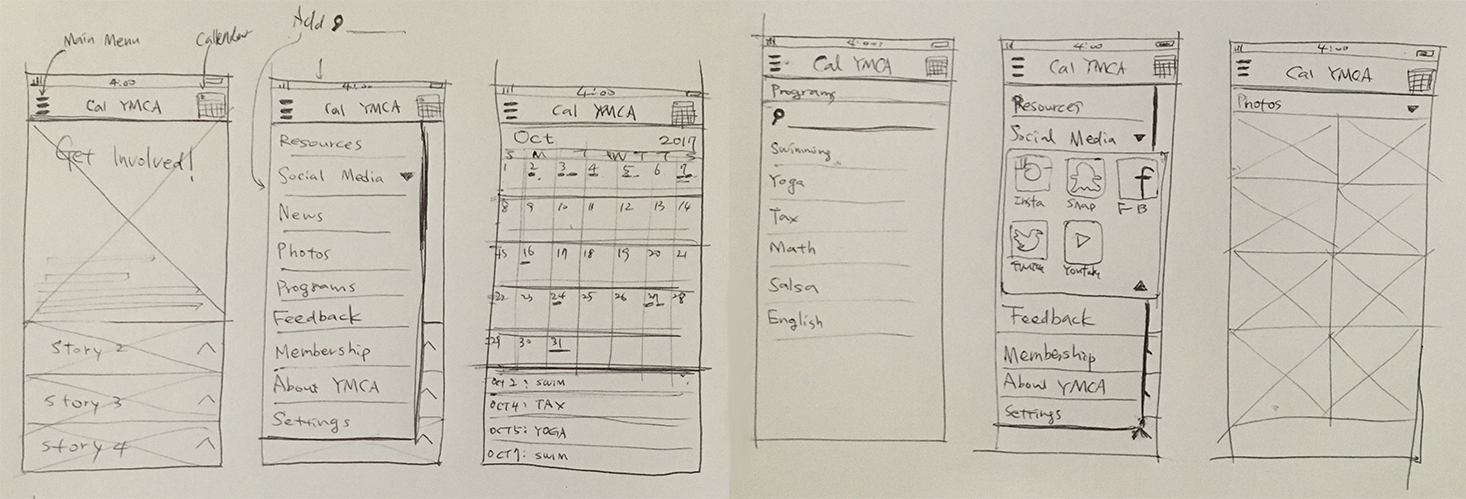 Main Menu
Add
4:00
Cal YMCA
Get Involved!
Story 2
Story 3
Story 4
4:00
Cal YMCA
Resources
Social Media
News
Photos
Programs
Feedback
Membership
About YMCA
Settings
4:00
Cal YMCA
Oct 2017
S M T W T T S
1 2 3 4 5 6 7
8 9 10 11 12 13 14
15 16 17 18 19 20 21
22 23 24 25 26 27 28
29 30 31
OCT 2: SWIM
OCT4: TAX
OCT5: YOGA
OCT7: SWIM
Cal YMCA
Programs
Swimming
Yoga
Tax
Math
Salsa
English
4:00
Cal YMCA
Resources
Social Media
Insta Snap FB
Youtube
Feedback
Membership
About YMCA
Settings
4:00
Cal YMCA
Photos